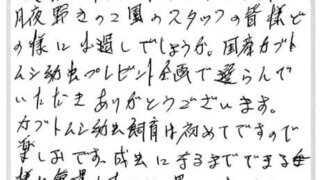 月夜野きのこ園のスタッフの皆様ど
の様にお過しでしょうか。国産カブト
ムシ幼虫プレゼント企画で選らんで
いただきありがとうございます。
カブトムシ幼虫飼育は初めてですので
楽しみです。成虫になるまでできる